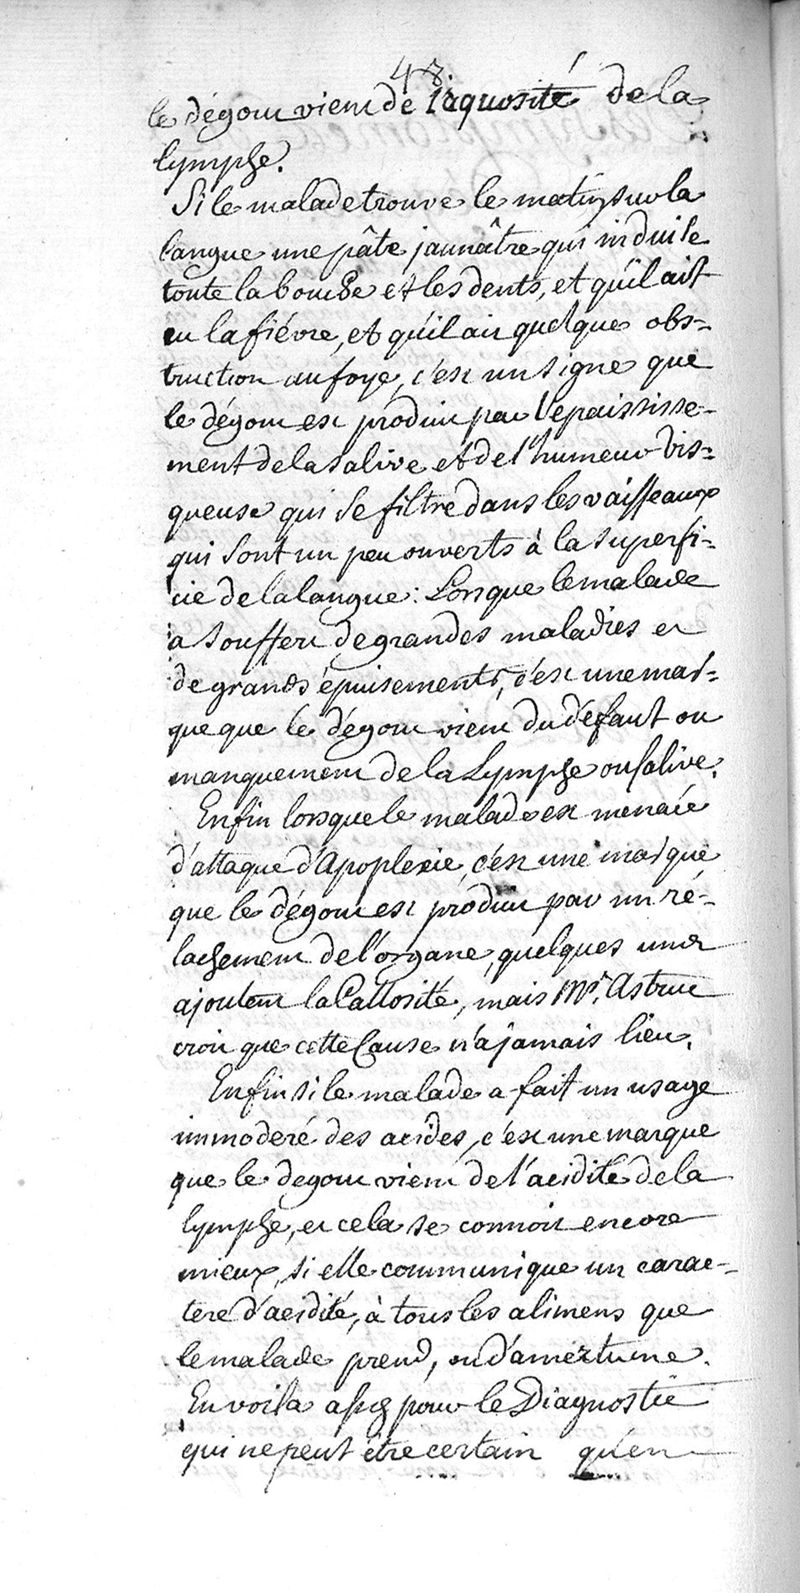 48.
le dégout vient de l'aquosité de la
lymphe.
Si le malade trouve le matin sur la
langue une pâte jaunâtre qui induise
toute la bouche et les dents, et qu'il ait
eu la fiévre, et qu'il ait quelque obs=
truction au foye, c'est un signe que
le dégout est produit par l'epaississe-
ment de la salive et de l'humeur vis=
queuse qui se filtre dans les vaisseaux
qui sont un peu ouverts à la superfi=
cie de la langue: Lorsque le malade
a souffert de grandes maladies et
de grands épuisements, c'est une mar=
que que le dégout vient du défaut ou
manquement de la Lymphe ou salive.
Enfin lorsque le malade est menacé
d'attaque d'Apoplexie, c'est une marque
que le dégout est produit par un ré=
lachement de l'organe, quelques uns
ajoutent la Callosité, mais Mr. Astruc
croit que cette Cause n'a jamais lieu.
Enfin si le malade a fait un usage
immoderé des acides, c'est une marque
que le degout vient de l'acidité de la
lymphe, et cela se connoit encore
mieux, si elle communique un carac=
tere d'acidité, à tous les alimens que
le malade prend, ou d'amertume.
En voila assez pour le Diagnostic
qui ne peut être certain qu'en